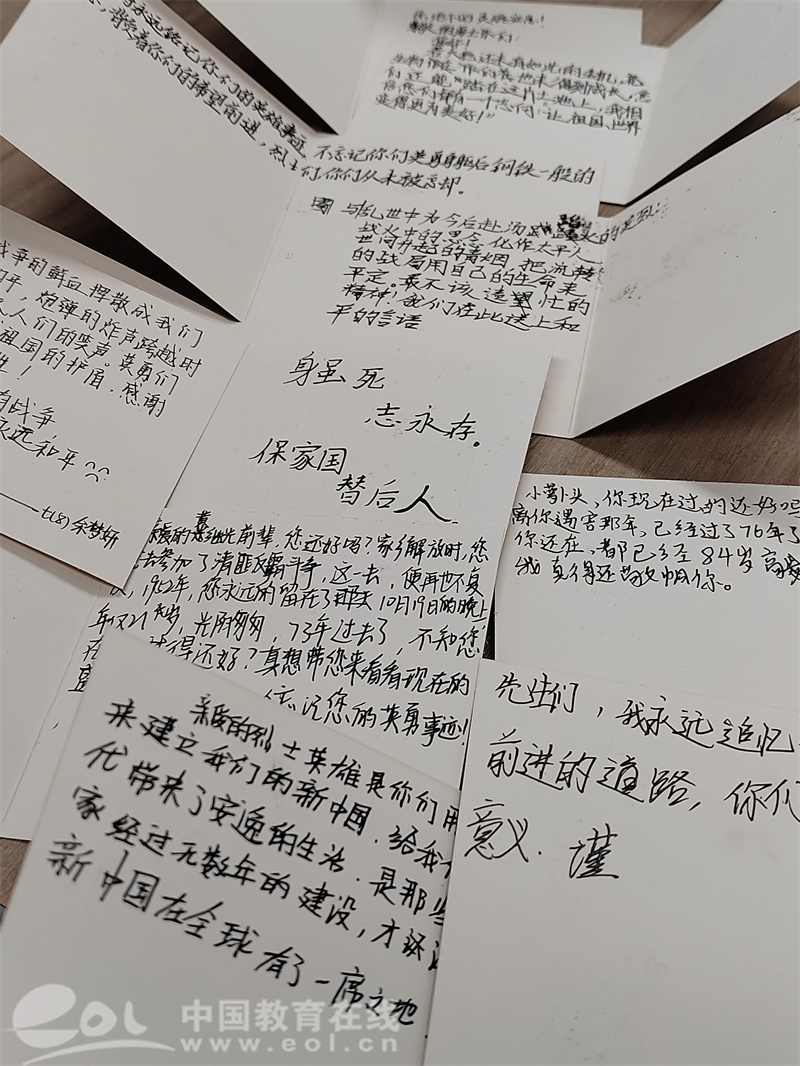 永远铭记你们的英雄事迹，
背负着你们的希望前进，烈士们你们从未被忘却。
你们好！
生物
们还能踏在这片土地上，我相
信我们都有一个志向：让祖国、世界
变得更为美好！"
不忘记你们英勇身躯后钢铁一般的
与乱世中为今后赴汤
战火中的思念化作太平人
世间升起的青烟，把流转
的战局用自己的生命来
平定。最不该遗忘的
精神！我们在此送上和
平的
战争的鲜血挥散成我们
的平，炮弹的炸声跨越时
人们的笑声。英勇们
祖国的护盾，感谢
永远和平
七(8)余梦妍
身虽死
志永存。
保家国
替后人
小萝卜头，你现在过的还好吗
离你遇害那年，已经过了76年了
你还在，都已经84岁高龄
我真得还敬佩你。
继光前辈，您还好吗？家乡解放时，您
去参加了清匪反霸斗争，这一去，便再也不复
19 2年，您永远的留在了那天10月19日的晚上
年仅21岁，光阴匆匆，73年过去了，不知您
在 过得还好？真想带您来看看现在的
记您的英勇事迹！
亲爱的烈士英雄是你们用
来建立我们的新中国，给我
代带来了安逸的生活，是那些
家经过无数年的建设，才
新中国在全球有了一席之地
先生们，我永远追忆
前进的道路，你们
意义。谨
eol 中国教育在线
www.eol.cn